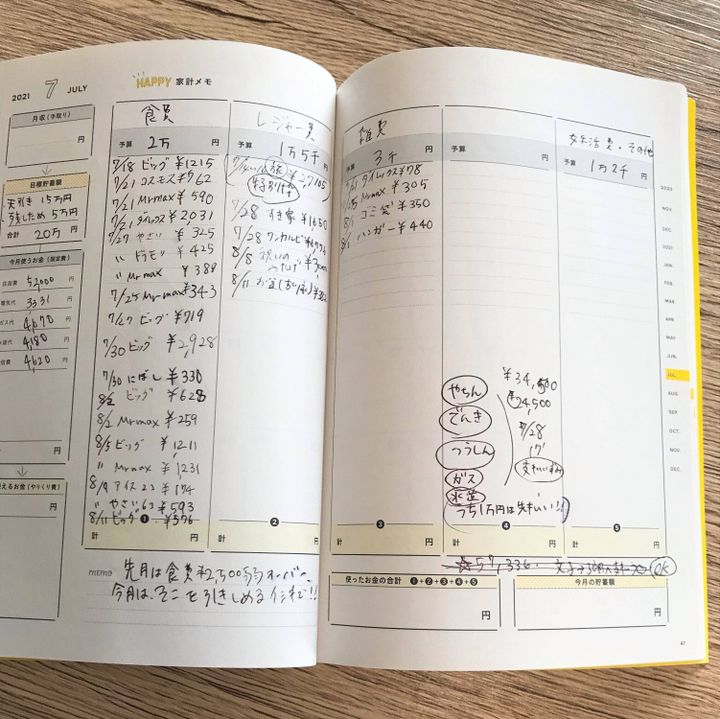 2021 7 JULY
HAPPY 家計メモ
月収(手取り)
円
目標貯蓄額
天引き 15万円
残しため 5万円
合計 20万 円
今月使うお金(固定費)
住居費 52,000 円
電気代 3331 円
ガス代 4,670 円
水道代 4,180 円
通信費 4,620 円
円
使えるお金(やりくり費)
円
食費
予算 2万 円
7/18 ビッグ ¥1215
7/21 コスモス ¥762
7/21 Mrmax ¥590
7/21 ダイレックス ¥2,031
7/27 やさい ¥325
〃 ドラモリ ¥425
〃 Mrmax ¥388
7/25 Mrmax ¥343
7/27 ビッグ ¥719
7/30 ビッグ ¥2,928
7/30 にぼし ¥330
8/2 ビッグ ¥628
8/2 Mrmax ¥259
8/5 ビッグ ¥1,211
〃 Mrmax ¥1,231
8/9 アイス
〃 やさい ¥593
8/11 ビッグ ¥576
1
計 円
レジャー費
予算 1万5千 円
旅 ¥27,105
特別費
7/28 すき家 ¥1650
7/28 ワンカルビ
8/8 祝いの
8/11 お盆
2
計 円
memo 先月は食費¥2,500弱オーバー。
今月は、そこを引きしめるイメージで!!
雑費
予算 3千 円
7/21 ダイレックス ¥78
7/25 Mrmax ¥305
8/1 ゴミ袋 ¥350
8/1 ハンガー ¥440
3
計 円
予算 円
やちん
でんき
つうしん
ガス
水道
¥34,500
¥24,500
7/28
支払いずみ
うち1万円は
4
計 円
妊活費・その他
予算 1万2千 円
5
計 円
57,336
OK
使ったお金の合計 1+2+3+4+5
円
今月の貯蓄額
円
2020
NOV.
DEC.
2021
JAN.
FEB.
MAR.
APR.
MAY
JUN.
JUL.
AUG.
SEP.
OCT.
NOV.
DEC.
47